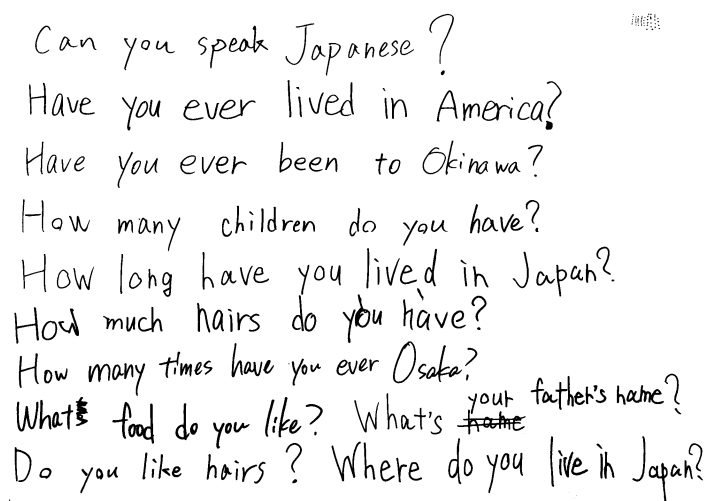 Can you speak Japanese?
Have you ever lived in America?
Have you ever been to Okinawa?
How many children do you have?
How long have you lived in Japan?
How much hairs do you have?
How many times have you ever Osaka?
What food do you like? What's your father's name?
Do you like hairs? Where do you live in Japan?